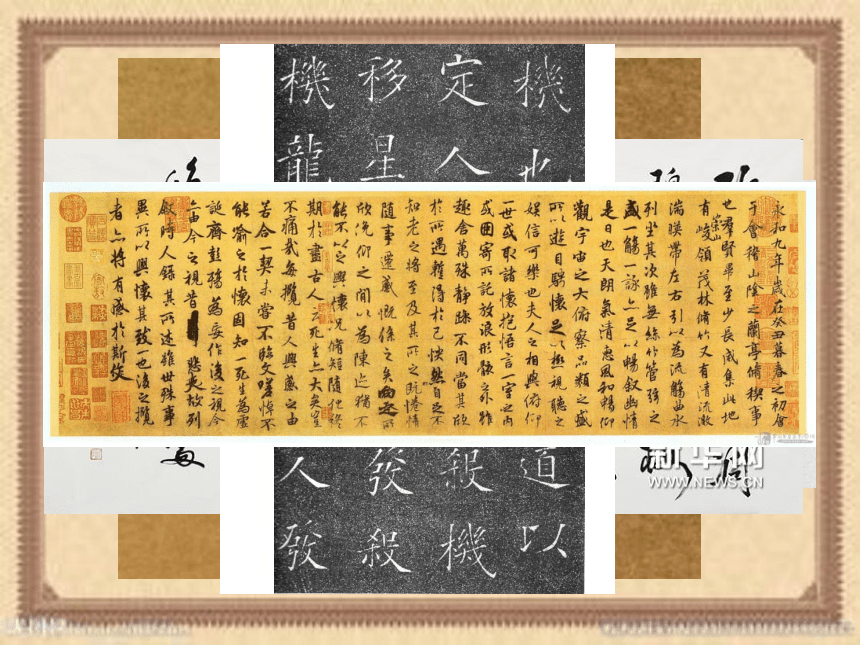 機也
定人
移星
機龍
永和九年歲在癸丑暮春之初會
于會稽山陰之蘭亭脩稧事
也群賢畢至少長咸集此地
有崇山峻領茂林脩竹又有清流激
湍暎帶左右引以為流觴曲水
列坐其次雖無絲竹管弦之
盛一觴一詠亦足以暢敘幽情
是日也天朗氣清惠風和暢仰
觀宇宙之大俯察品類之盛
所以遊目騁懷足以極視聽之
娛信可樂也夫人之相與俯仰
一世或取諸懷抱悟言一室之內
或因寄所託放浪形骸之外雖
趣舍萬殊靜躁不同當其欣
於所遇蹔得於己怏然自足不
知老之將至及其所之既惓情
隨事遷感慨係之矣向之所
欣俛仰之間以為陳迹猶不
能不以之興懷況脩短隨化終
期於盡古人云死生亦大矣豈
不痛哉每攬昔人興感之由
若合一契未嘗不臨文嗟悼不
能喻之於懷固知一死生為虛
誕齊彭殤為妄作後之視今
亦由今之視昔悲夫故列
敘時人錄其所述雖世殊事
異所以興懷其致一也後之攬
者亦將有感於斯文
道以
殺機
發殺
人發
新华网
WWW.NEWS.CN